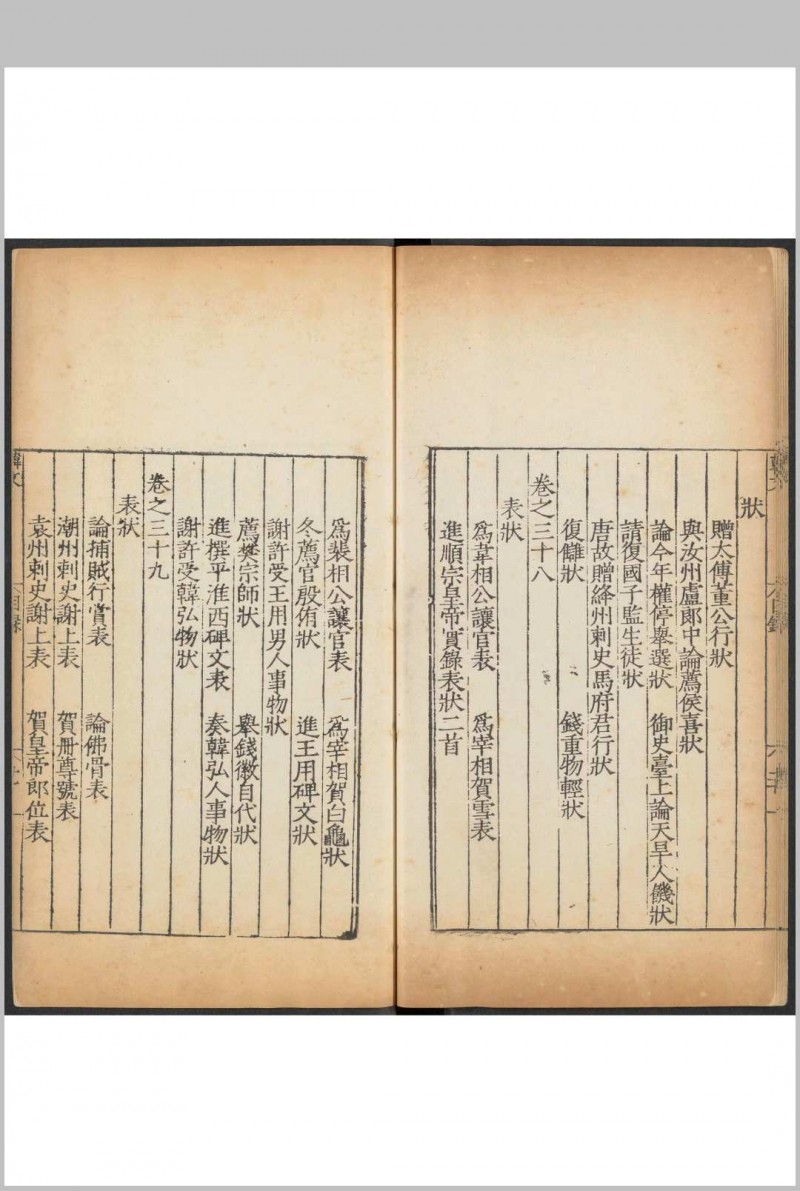 狀
贈太傅董公行狀
與汝州盧郎中論薦侯喜狀
論今年權停舉選狀　御史臺上論天旱人饑狀
請復國子監生徒狀
唐故贈絳州刺史馬府君行狀
復讎狀　錢重物輕狀
卷之三十八
表狀
為韋相公讓官表　為宰相賀雪表
進順宗皇帝實錄表狀二首
為裴相公讓官表　為宰相賀白龜狀
冬薦官殷侑狀　進王用碑文狀
謝許受王用男人事物狀
薦樊宗師狀　舉錢徽自代狀
進撰平淮西碑文表　奏韓弘人事物狀
謝許受韓弘物狀
卷之三十九
表狀
論捕賊行賞表　論佛骨表
潮州刺史謝上表　賀冊尊號表
袁州刺史謝上表　賀皇帝郎位表
韓文　目錄